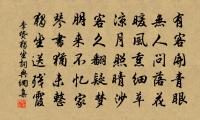 有客開青眼
無人問落花
暖風熏細草
涼月照晴沙
客久翻疑夢
朋來不憶家
琴書猶未整
獨坐送殘霞
李贄獨坐詞典網集